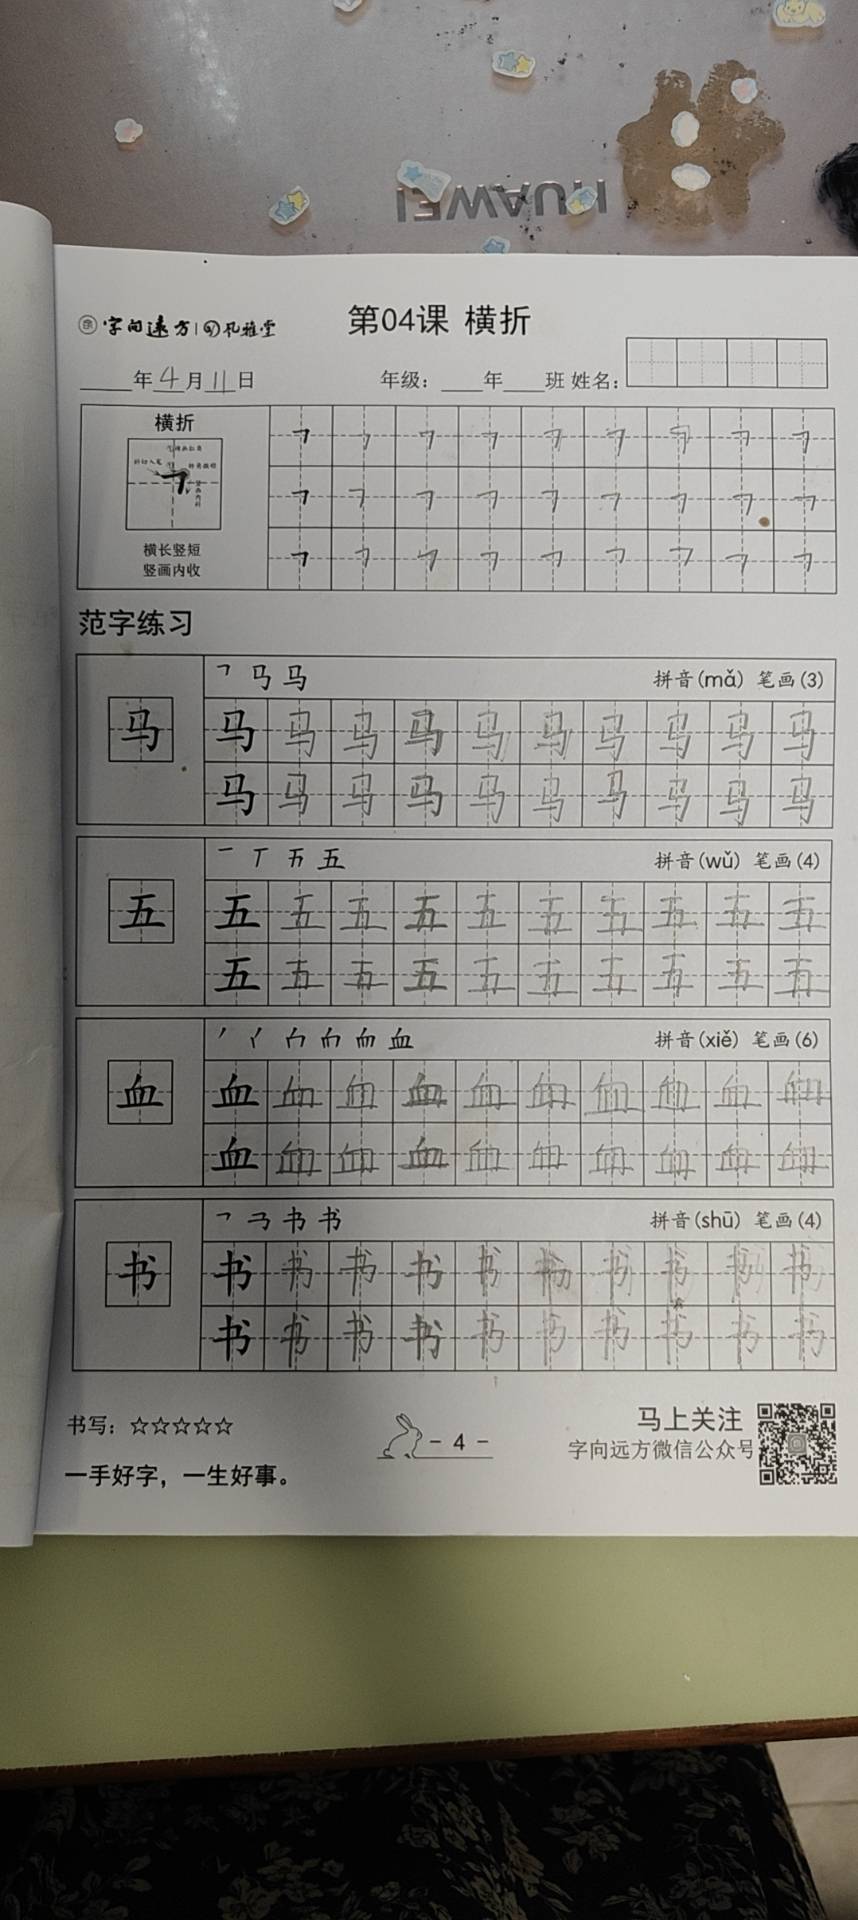 HUAWEI
字向远方
第04课 横折
年4月11日 年级：年班 姓名：
横折
横长竖短
竖画内收
范字练习
㇕ 马 马 拼音(mǎ) 笔画(3)
马 马 马 马 马 马 马 马 马 马 马
马 马 马 马 马 马 马 马 马 马
一 丅 五 五 拼音(wǔ) 笔画(4)
五 五 五 五 五 五 五 五 五 五 五
五 五 五 五 五 五 五 五 五 五
血 拼音(xiě) 笔画(6)
血 血 血 血 血 血 血 血 血 血 血
血 血 血 血 血 血 血 血 血 血
㇕ 书 书 拼音(shū) 笔画(4)
书 书 书 书 书 书 书 书 书 书 书
书 书 书 书 书 书 书 书 书 书
书写：☆☆☆☆☆
一手好字，一生好事。
- 4 -
马上关注
字向远方微信公众号